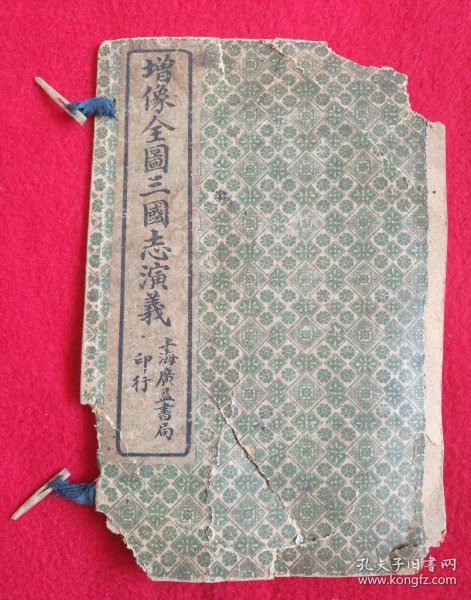 增像全圖三國志演義
上海廣益書局
印行
孔夫子旧书网
www.kongfz.com